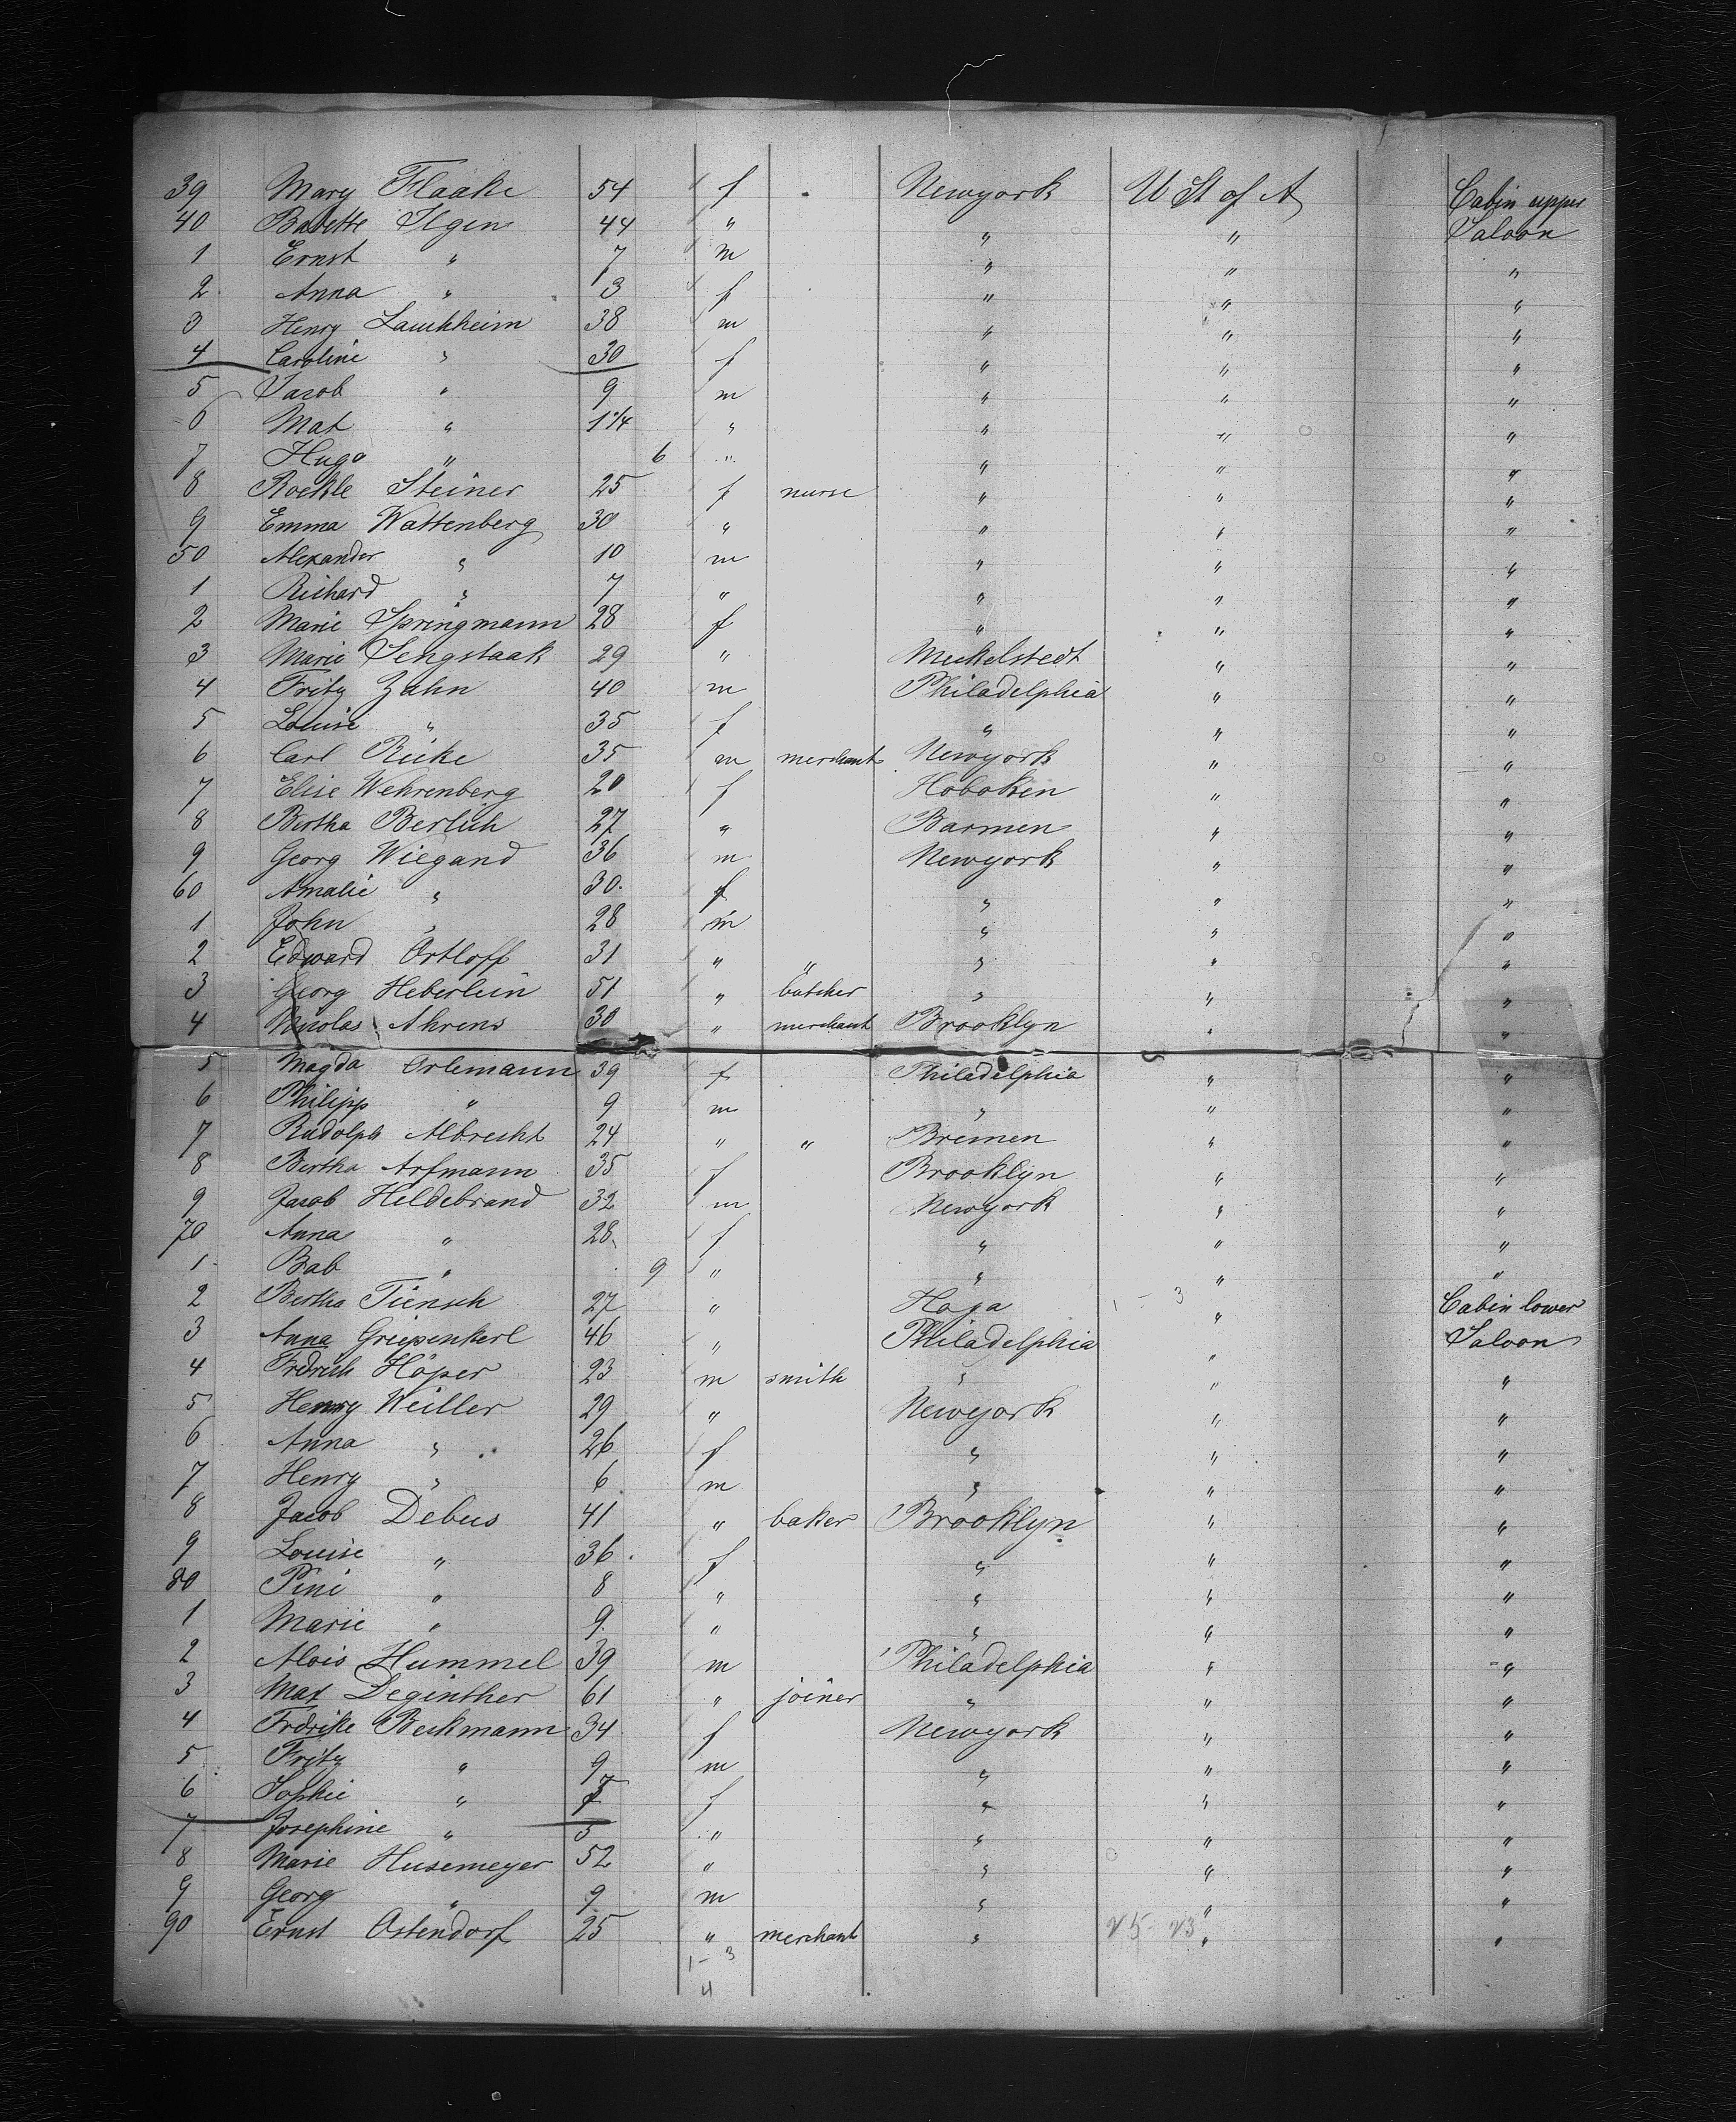 39 Mary Flaake 54 f Newyork U St of A Cabin upper
40 Babette Ilgen 44 " " " Saloon
1 Ernst " 7 m " " "
2 Anna " 3 f " " "
3 Henry Lauchheim 38 m " " "
4 Caroline " 30 f " " "
5 Jacob " 9 m " " "
6 Max " 1 1/4 " " " "
7 Hugo " 6 " " " "
8 Steiner 25 f nurse " " "
9 Emma Wattenberg 30 " " " "
50 Alexander " 10 m " " "
1 Richard " 7 " " " "
2 Marie Springmann 28 f " " "
3 Marie Sengstaak 29 " Meckelstedt " "
4 Fritz Zahn 40 m Philadelphia " "
5 Louise " 35 f " " "
6 Carl Ricke 35 m merchant Newyork " "
7 Elise Wehrenberg 20 f Hoboken " "
8 Bertha Berlich 27 " Barmen " "
9 Georg Wiegand 36 m Newyork " "
60 Amalie " 30. f " " "
1 John " 28 m " " "
2 Edward Ortloff 31 " " " " "
3 Georg Heberlein 51 " butcher " " "
4 Nicolas Ahrens 30 " merchant Brooklyn " "
5 Magda Orlemann 39 f Philadelphia " "
6 Philipp " 9 m " " "
7 Rudolph Albrecht 24 " " Bremen " "
8 Bertha Arfmann 35 f Brooklyn " "
9 Jacob Hildebrand 32 m Newyork " "
70 Anna " 28. f " " "
1 Bab " 9 " " " "
2 Bertha Tiensch 27 " Haga 1 - 3 " Cabin lower
3 Anna Griepenkerl 46 " Philadelphia " Saloon
4 Frdrich Höper 23 m smith " " "
5 Henry Weiller 29 " Newyork " "
6 Anna " 26 f " " "
7 Henry " 6 m " " "
8 Jacob Debus 41 " baker Brooklyn " "
9 Louise " 36 f " " "
80 Pini " 8 " " " "
1 Marie " 9 " " " "
2 Alois Hummel 39 m Philadelphia " "
3 Max Deginther 61 " joiner " " "
4 Frdrike Beckmann 34 f Newyork " "
5 Fritz " 9 m " " "
6 Sophie " 7 f " " "
7 Josephine " 5 " " " "
8 Marie Husemeyer 52 " " " "
9 Georg " 9 m " " "
90 Ernst Ostendorf 25 " merchant " 25 - 23 " "
1 - 3
4